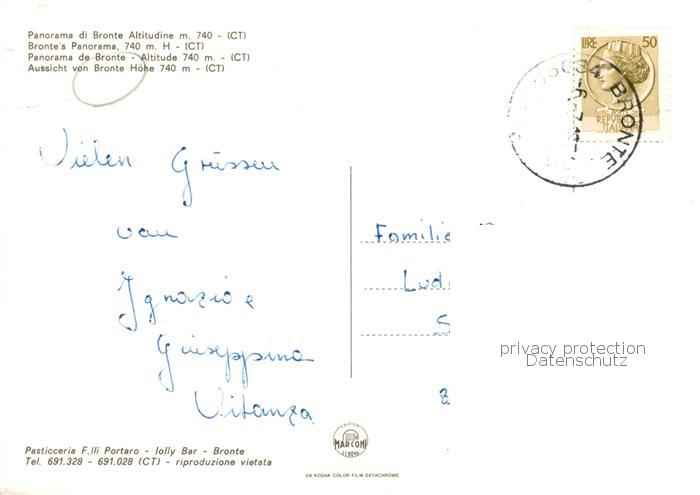 Panorama di Bronte Altitudine m. 740 - (CT)
Bronte's Panorama, 740 m. H - (CT)
Panorama de Bronte - Altitude 740 m. - (CT)
Aussicht von Bronte Höhe 740 m - (CT)
LIRE 50
REPVBBLICA
ITALIANA
BRONTE
Vielen Grüssen
van
Ignazio e
Giuseppina
Vitanza
Familie
Lud
S
privacy protection
Datenschutz
EDIZIONI
MARCONI
GENOVA
Pasticceria F.lli Portaro - Iolly Bar - Bronte
Tel. 691.328 - 691.028 (CT) - riproduzione vietata
DA KODAK COLOR FILM EKTACHROME